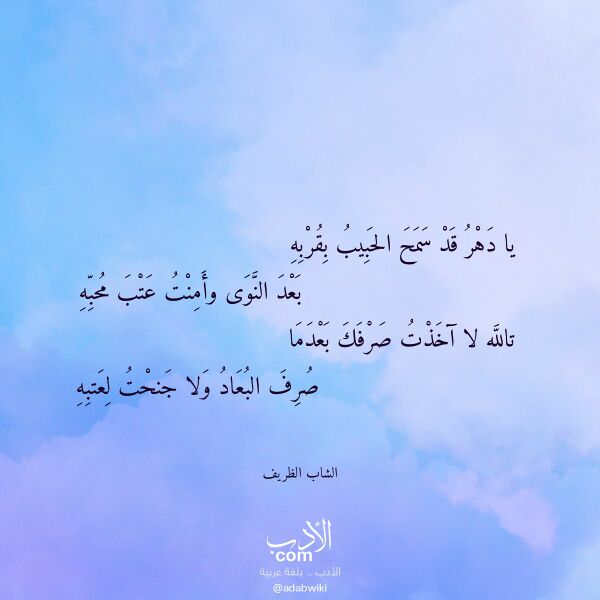 يا دَهْرُ قَدْ سَمَحَ الحَبِيبُ بِقُرْبِهِ
بَعْدَ النَّوَى وأَمِنْتُ عَتْبَ مُحبِّهِ
تاللَّه لا آخَذْتُ صَرْفَكَ بَعْدَمَا
صُرِفَ البُعَادُ وَلا جَنحْتُ لِعَتبِهِ
الشاب الظريف
الأدب
com
الأدب .. بلغة عربية
@adabwiki